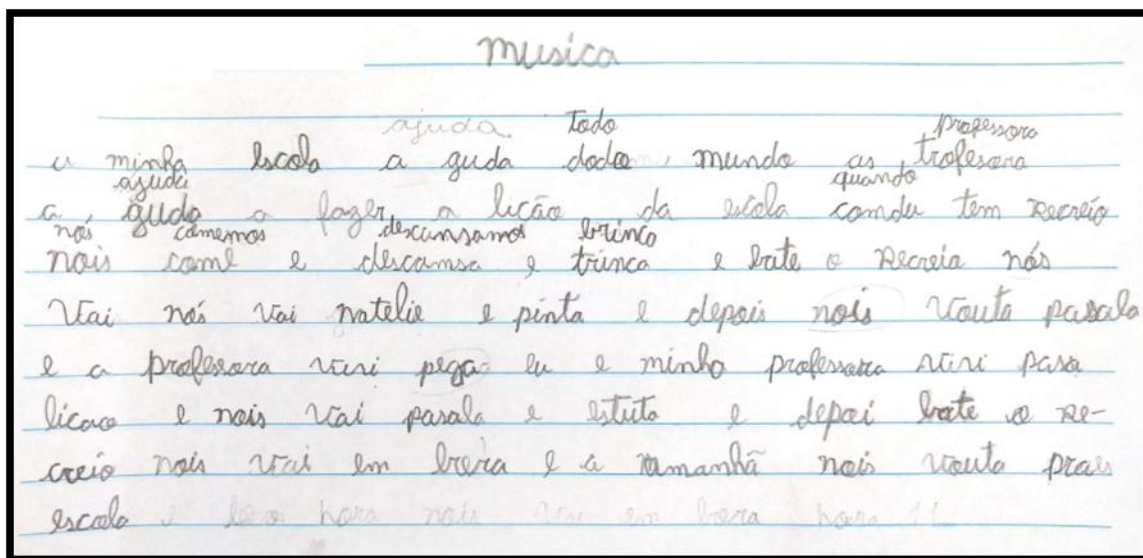 musica
ajuda todo professora
a minha escola a guda dodo mundo as trofesora
ajuda quando
a guda a fazer a lição da escola comdu tem recreio
nós comemos descansamos brinco
nois come e descamsa e trinca e bate o recreia nós
Vai nós vai natelie e pinta e depois nois vouta pasala
e a professora vai pega eu e minha professora vai pasa
licao e nois vai pasala e estuta e depoi bate o re-
creio nois vai em bora e a mamanhã nois vouta pra
escola e hora nois vai em bora hora 11